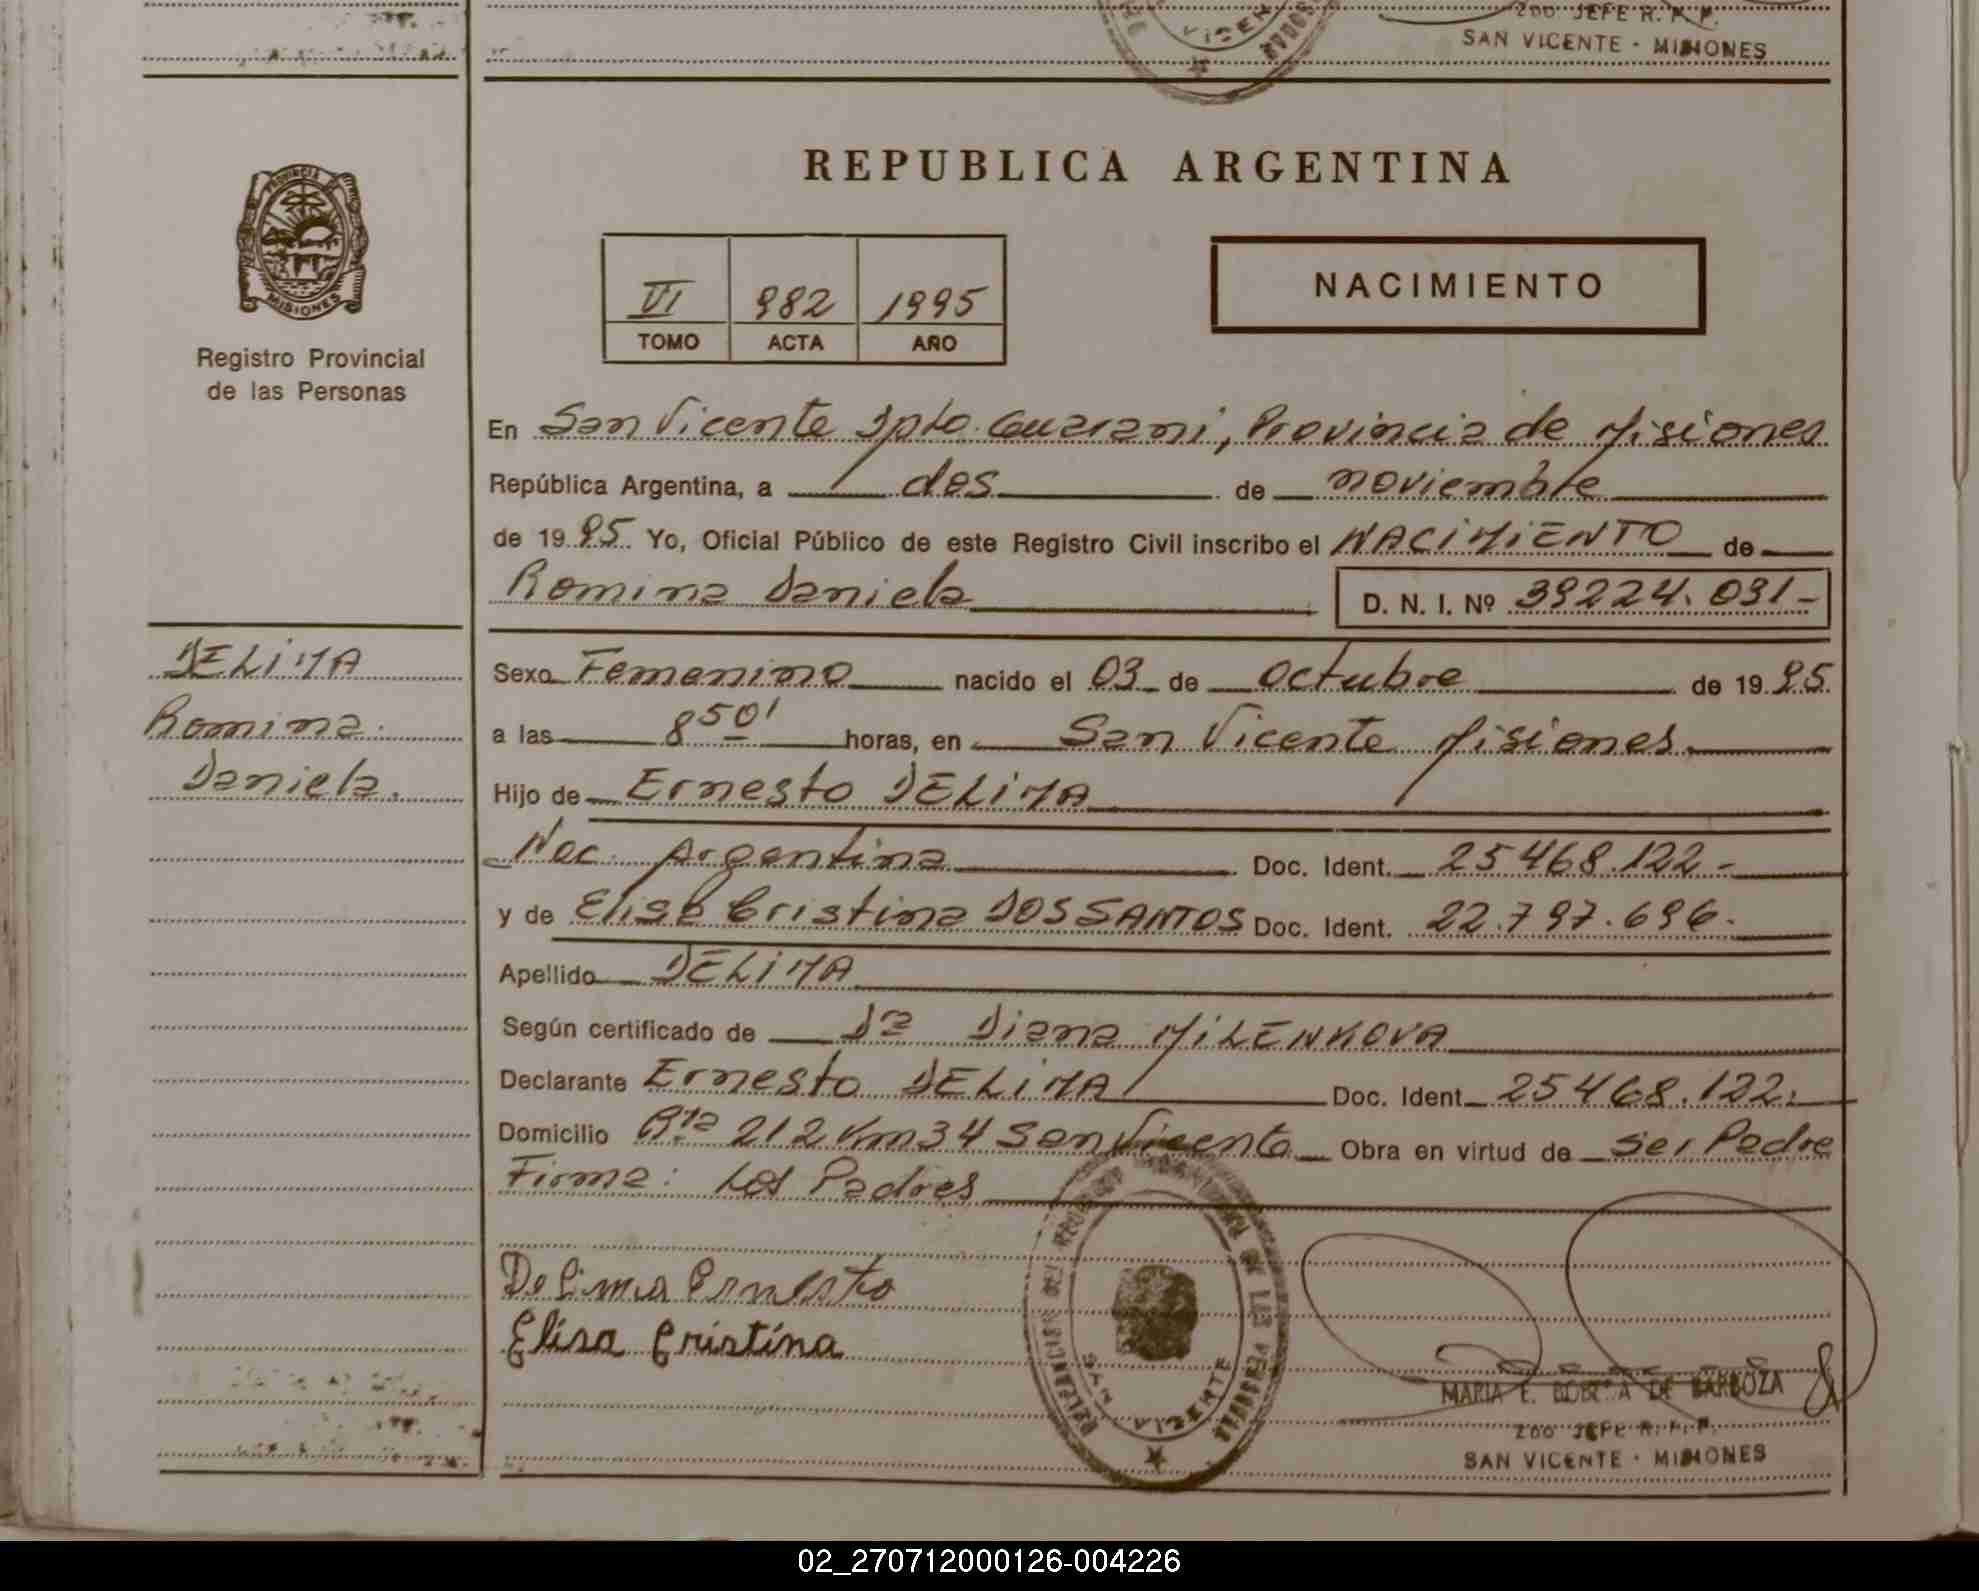 2do JEFE R. P. P.
SAN VICENTE - MISIONES
REPUBLICA ARGENTINA
PROVINCIA DE
MISIONES
Registro Provincial
de las Personas
VI 982 1995
TOMO ACTA AÑO
NACIMIENTO
En San Vicente Dpto. Guarani, Provincia de Misiones
República Argentina, a dos de noviembre
de 1995. Yo, Oficial Público de este Registro Civil inscribo el NACIMIENTO de
Romina Daniela D. N. I. Nº 39224.091-
DELIMA
Romina
Daniela.
Sexo Femenino nacido el 03 de octubre de 1995.
a las 8 50' horas, en San Vicente Misiones
Hijo de Ernesto DELIMA
Nac. Argentina Doc. Ident. 25468.122-
y de Elisa Cristina DOS SANTOS Doc. Ident. 22.797.696.
Apellido DELIMA
Según certificado de Dra Diana MILENKOVA
Declarante Ernesto DELIMA Doc. Ident. 25468.122.
Domicilio Rta 212 Km 34 San Vicente Obra en virtud de ser Padre
Firma: Los Padres
De Lima Ernesto
Elisa Cristina
SAN VICENTE
MARIA E. DE BARBOZA
2do JEFE R. P. P.
SAN VICENTE - MISIONES
02_270712000126-004226